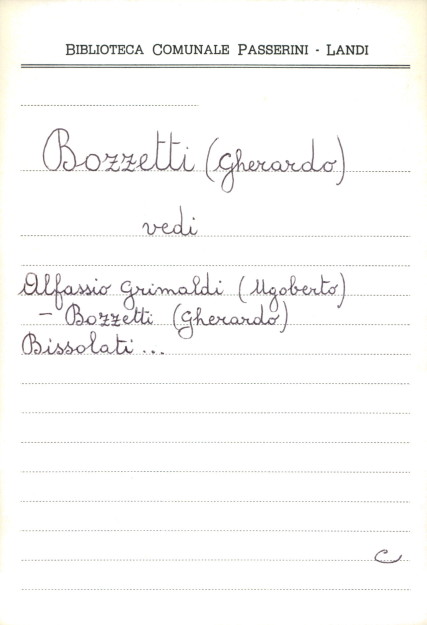 BIBLIOTECA COMUNALE PASSERINI - LANDI
Bozzetti (Gherardo)
vedi
Alfassio Grimaldi (Ugoberto)
- Bozzetti (Gherardo)
Bissolati...
C